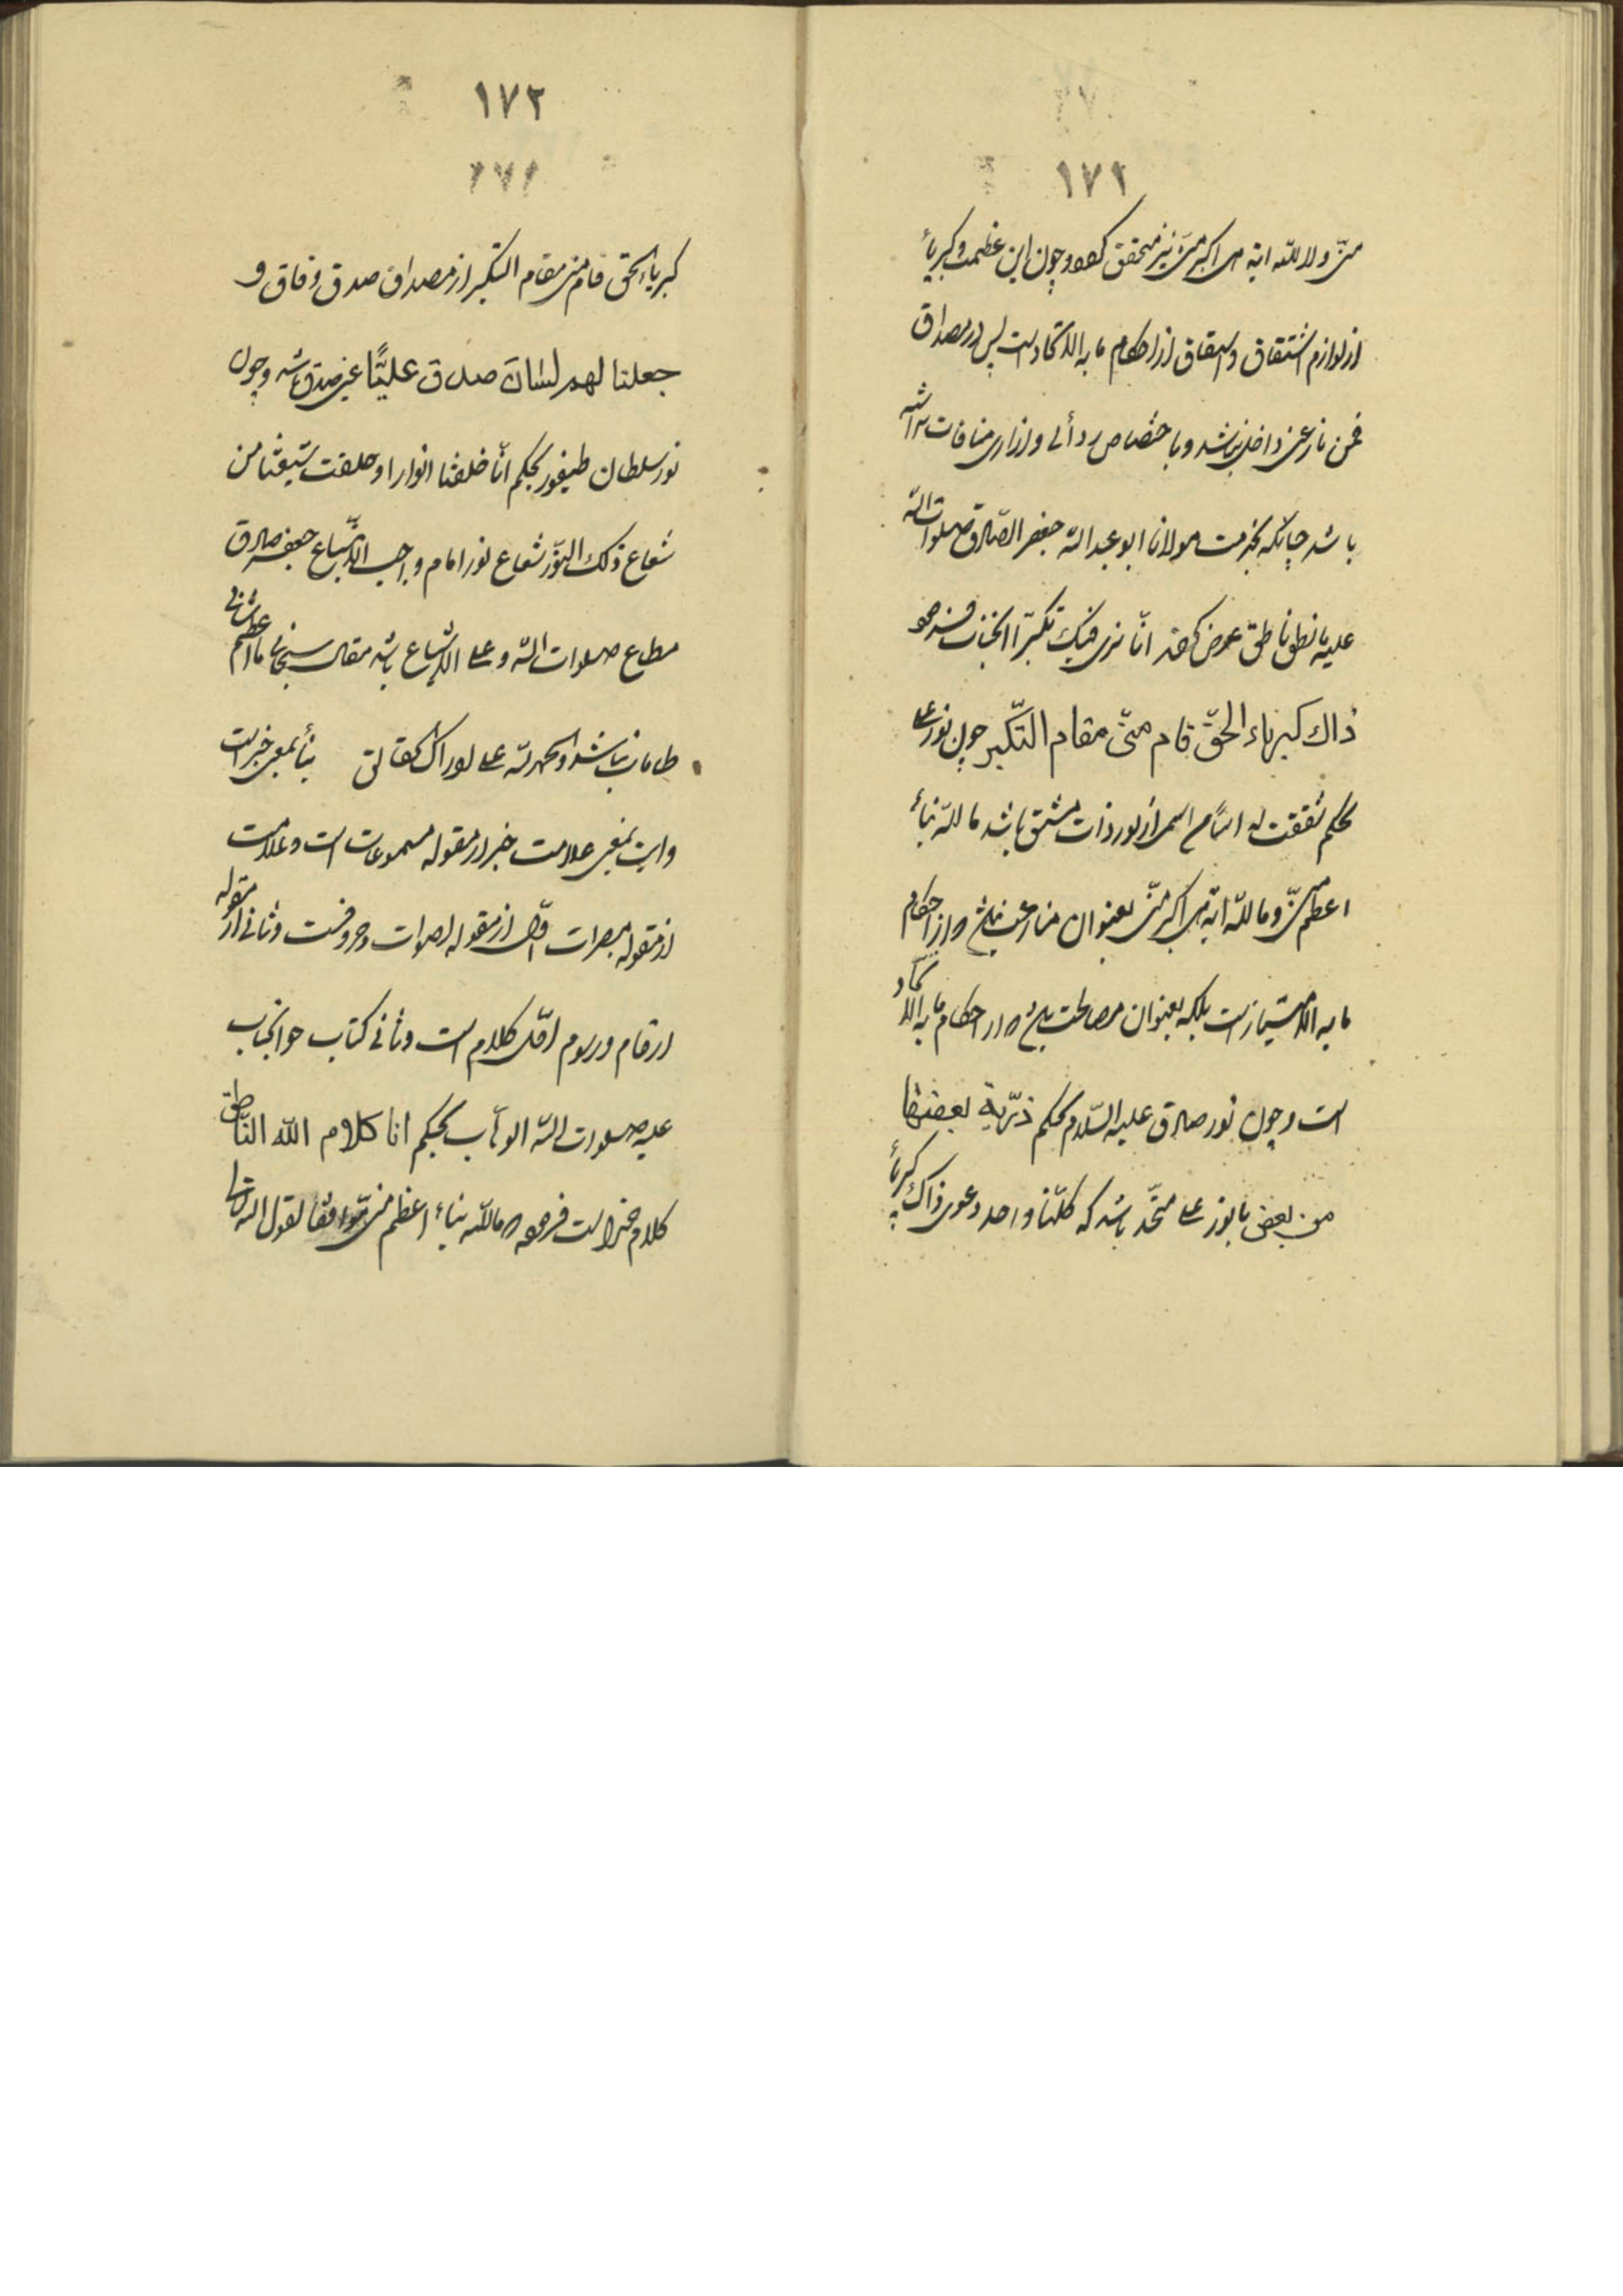 ۱۷۱
منّی ولا لله ایة هی اکبر منّی نیز محقق و چون این عظمت و کبریاء
از لوازم اشتقاق و از احکام ما به الاتحاد است پس در مصداق
فمن نازعنی داخل نباشد و با اختصاص ردائی و ازاری منافات نداشته
باشد چنانکه بخدمت مولانا ابو عبد الله جعفر الصّادق صلوات الله
علیه ناطق عرض کردند انّا نری فیک تکبّرا آنجناب فرمود
ذاك کبریاء الحقّ قام منّی مقام التّکبر چون نور علی
بحکم شققت له اسمًا من اسمی از نور ذات مشتق باشد ما لله نباء
اعظم منّی وما لله ایة هی اکبر منّی بعنوان منازعت نباشد و از احکام
ما به الامتیاز است بلکه بعنوان مصالحت باشد و از احکام ما به الاتحاد
است و چون نور صادق علیه السّلام بحکم ذرّیة بعضها
من بعض با نور علی متّحد باشد که کلّنا واحد دعوی ذاک کبریاء
۱۷۲
کبریاء الحق قام منی مقام التکبر از مصداق صدق و فاق و
جعلنا لهم لسان صدق علیًّا عین صدق باشد و چون
نور سلطان طیفور بحکم انّا خلقنا انوارا و خلقت شیعتنا من
شعاع ذلک النّور شعاع نور امام واجب الاتّباع جعفر صادق
مطاع صلوات الله و علی الاشیاع باشد مقال سبحانی ما اعظم شانی
طامات نباشد والحمد لله علی نباء بمعنی خبر است
وایت بمعنی علامت خبر از مقوله مسموعات است و علامت
از مقوله مبصرات اوّل از مقوله اصوات و حروفست و ثانی از مقوله
ارقام و رسوم اوّل کلام است و ثانی کتاب چو آنجناب
علیه صلوات الله الوهّاب بحکم انا کلام الله النّاطق
کلام خدا است فرموده ما لله نباء اعظم منی موافقا لقول الله تعالی